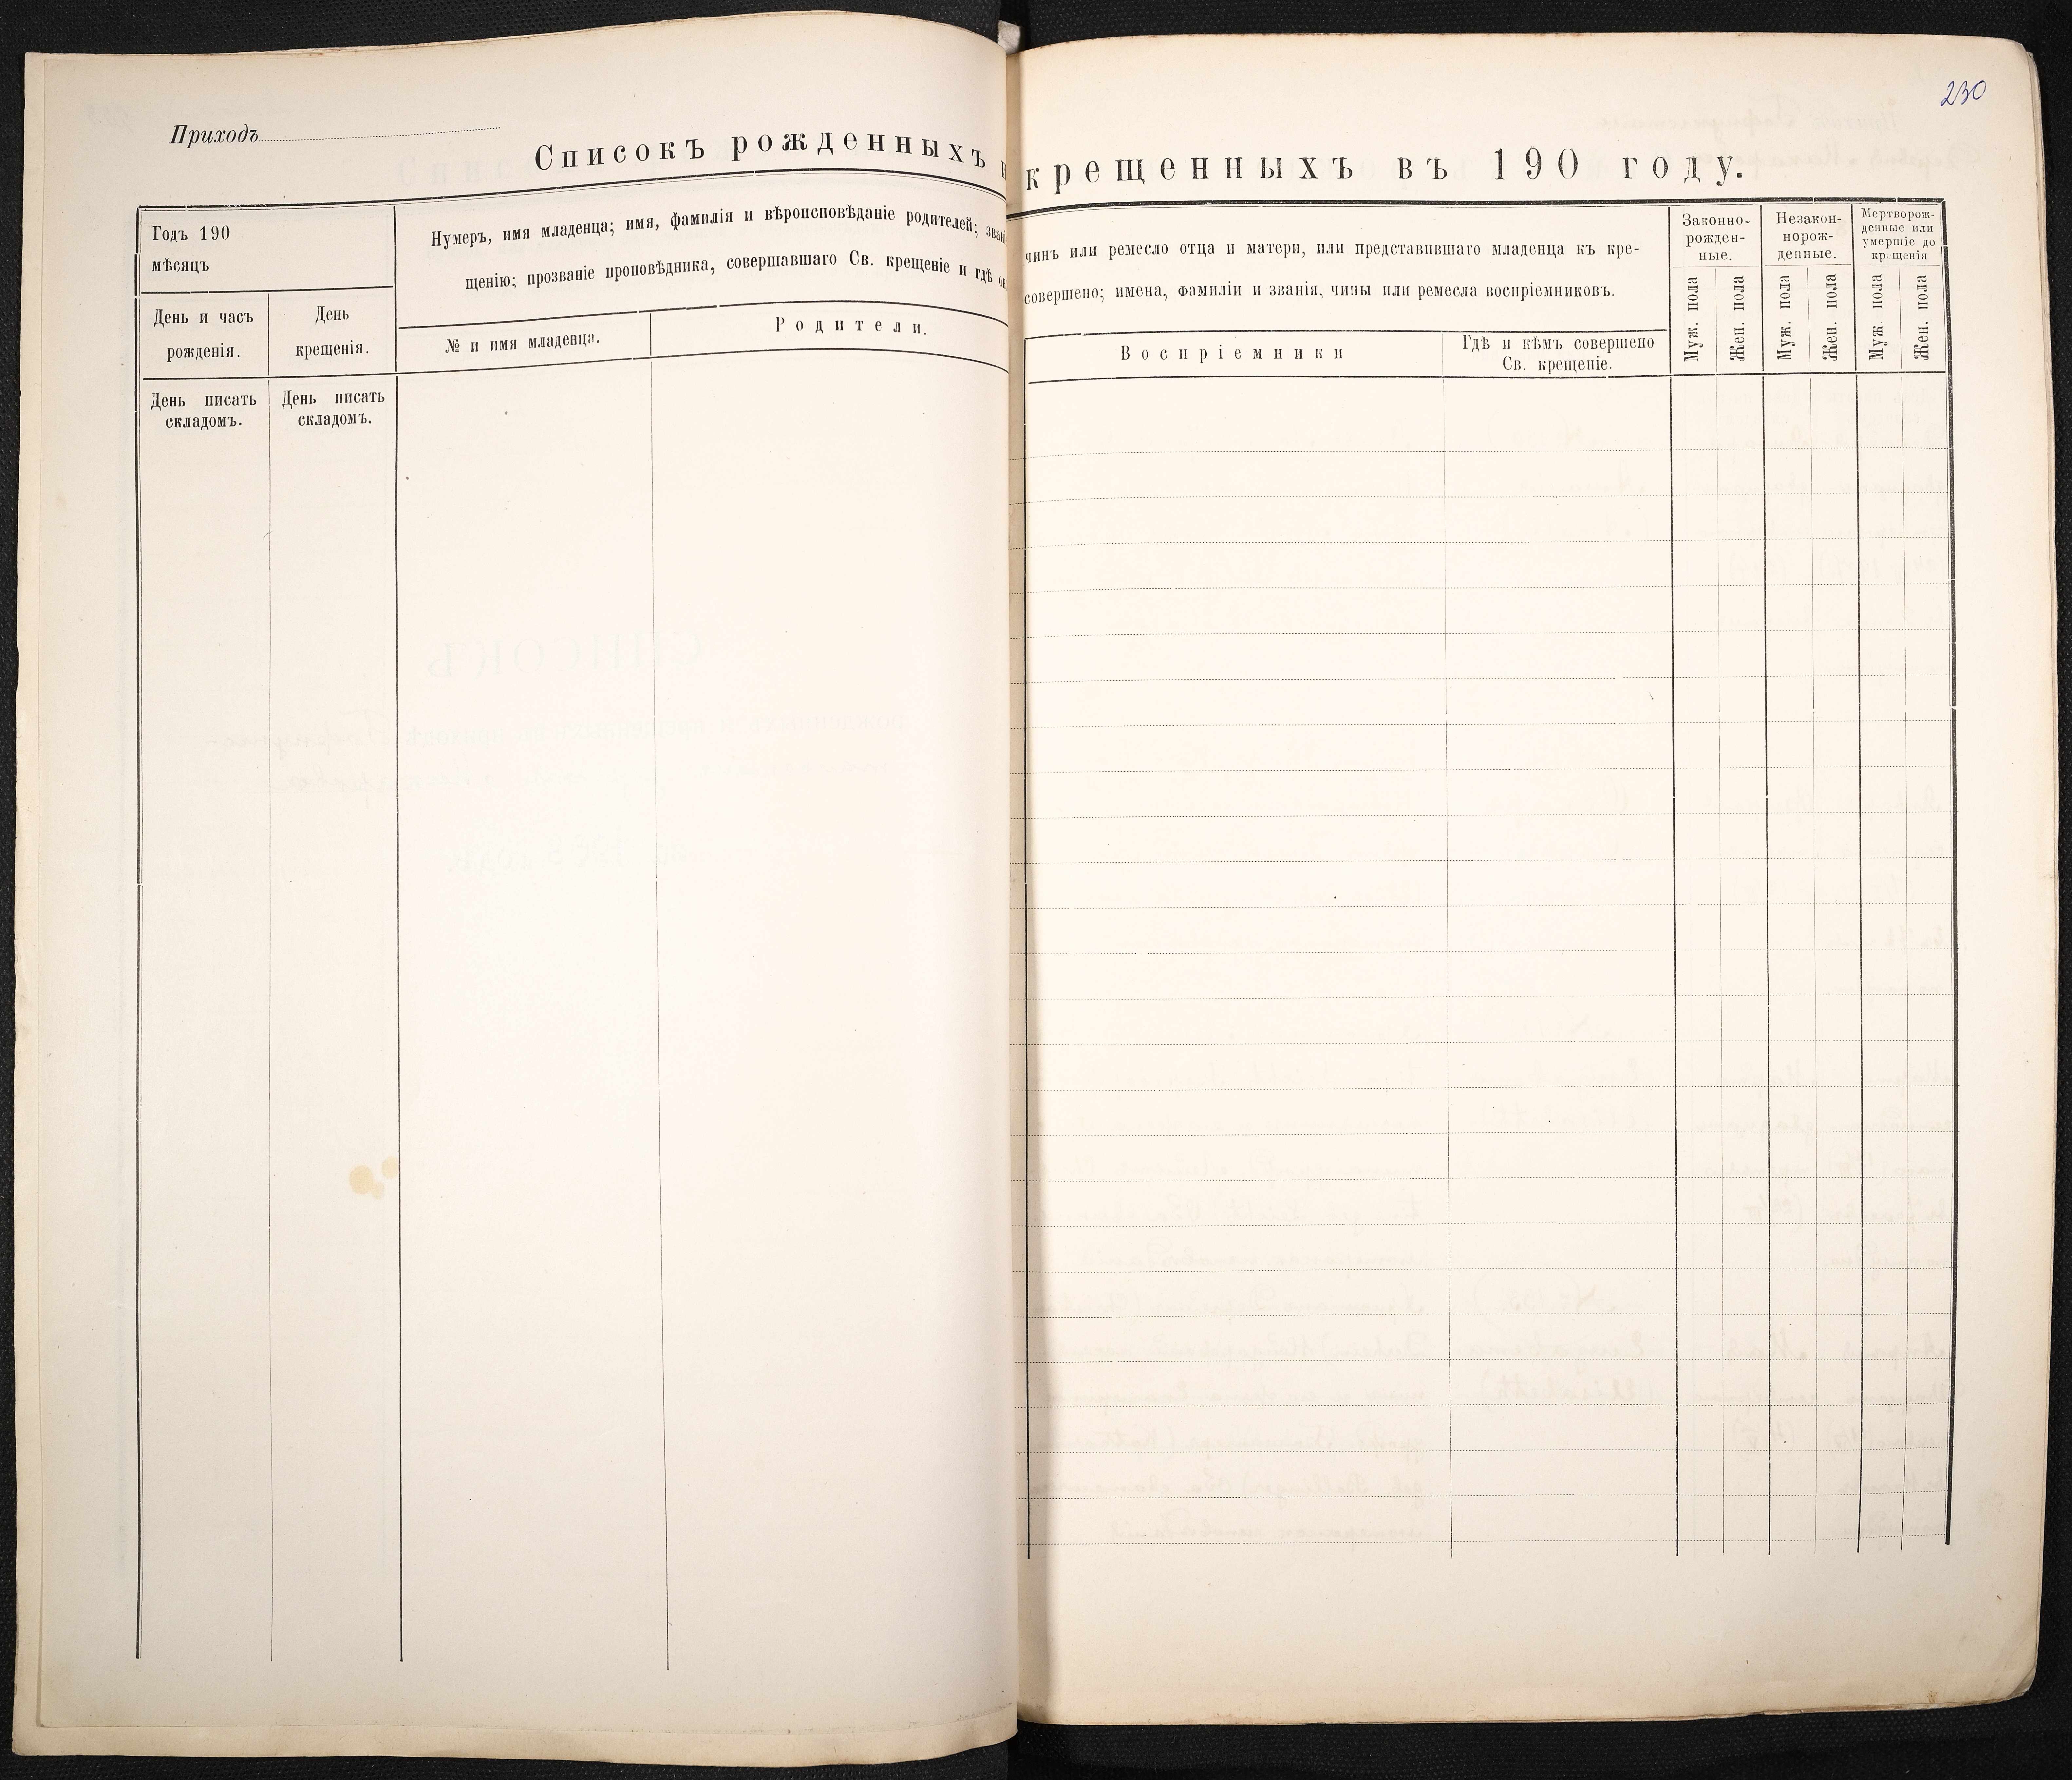 230
Приходъ
Списокъ рожденныхъ и крещенныхъ въ 190 году.
Годъ 190
мѣсяцъ
День и часъ
рожденія.
День
крещенія.
Нумеръ, имя младенца; имя, фамилія и вѣроисповѣданіе родителей; чинъ или ремесло отца и матери, или представившаго младенца къ кре-
щенію; прозваніе проповѣдника, совершавшаго Св. крещеніе и гдѣ совершено; имена, фамиліи и званія, чины или ремесла воспріемниковъ.
№ и имя младенца.
Родители.
Воспріемники
Гдѣ и кѣмъ совершено
Св. крещеніе.
Законно-
рожден-
ные.
Незакон-
норож-
денные.
Мертворож-
денные или
умершіе до
крещенія
Муж. пола
Жен. пола
Муж. пола
Жен. пола
Муж. пола
Жен. пола
День писать
складомъ.
День писать
складомъ.